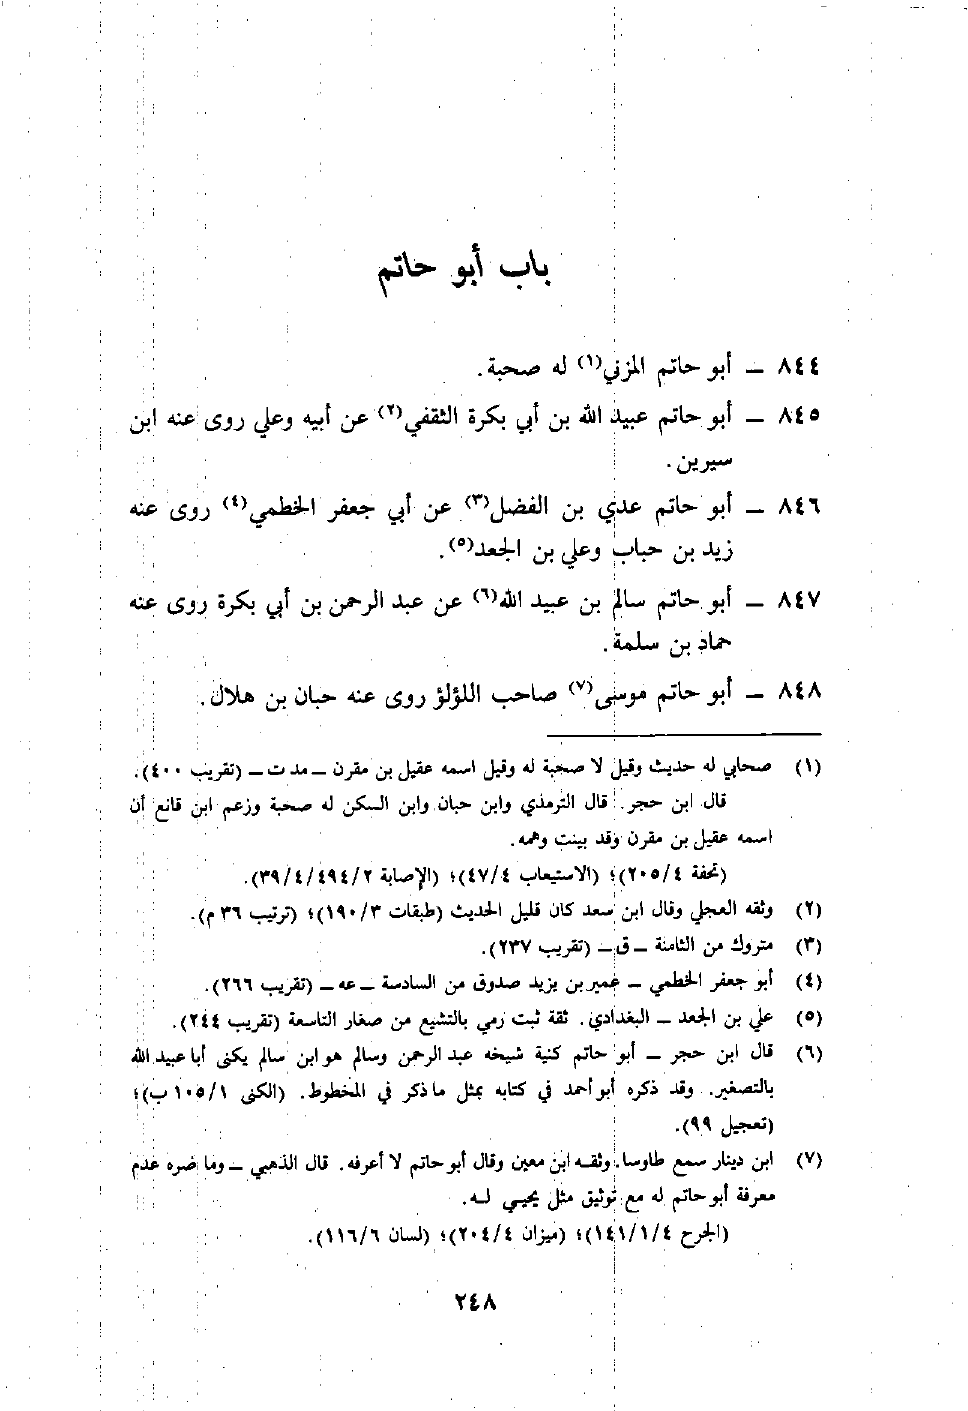 باب أبو حاتم
٨٤٤ — أبو حاتم المزني(١) له صحبة.
٨٤٥ — أبو حاتم عبيد الله بن أبي بكرة الثقفي(٢) عن أبيه وعلي روى عنه ابن
سيرين.
٨٤٦ — أبو حاتم عدي بن الفضل(٣) عن أبي جعفر الخطمي(٤) روى عنه
زيد بن حباب وعلي بن الجعد(٥).
٨٤٧ — أبو حاتم سالم بن عبيد الله(٦) عن عبد الرحمن بن أبي بكرة روى عنه
حماد بن سلمة.
٨٤٨ — أبو حاتم موسى(٧) صاحب اللؤلؤ روى عنه حبان بن هلال.
(١) صحابي له حديث وقيل لا صحبة له وقيل اسمه عقيل بن مقرن — مد ت — (تقريب ٤٠٠).
قال ابن حجر. قال الترمذي وابن حبان وابن السكن له صحبة وزعم ابن قانع أن
اسمه عقيل بن مقرن وقد بينت وهمه.
(تحفة ٢٠٥/٤)؛ (الاستيعاب ٤٧/٤)؛ (الإصابة ٣٩/٤/٤٩٤/٢).
(٢) وثقه العجلي وقال ابن سعد كان قليل الحديث (طبقات ١٩٠/٣)؛ (ترتيب ٣٦ م).
(٣) متروك من الثامنة — ق — (تقريب ٢٣٧).
(٤) أبو جعفر الخطمي — عمير بن يزيد صدوق من السادسة — عه — (تقريب ٢٦٦).
(٥) علي بن الجعد — البغدادي. ثقة ثبت رمي بالتشيع من صغار التاسعة (تقريب ٢٤٤).
(٦) قال ابن حجر — أبو حاتم كنية شيخه عبد الرحمن وسالم هو ابن سالم يكنى أبا عبيد الله
بالتصغير. وقد ذكره أبو أحمد في كتابه بمثل ما ذكر في المخطوط. (الكنى ١٠٥/١ ب)؛
(تعجيل ٩٩).
(٧) ابن دينار سمع طاوسا. وثقه ابن معين وقال أبو حاتم لا أعرفه. قال الذهبي — وما ضره عدم
معرفة أبو حاتم له مع توثيق مثل يحيى له.
(الجرح ١٤١/١/٤)؛ (ميزان ٢٠٤/٤)؛ (لسان ١١٦/٦).
٢٤٨